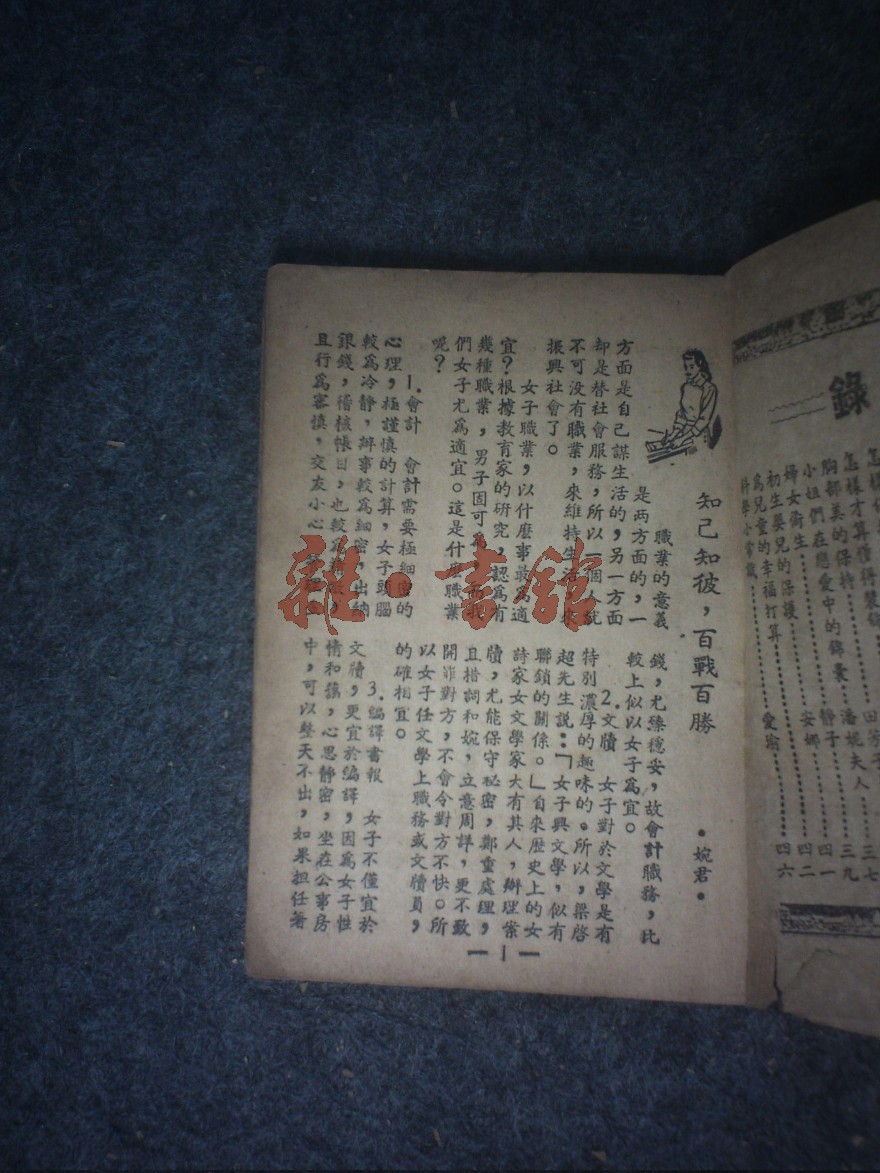 錄
怎樣才算懂得裝飾
胸部美的保持
小姐們在戀愛中的錦囊
婦女衛生
初生嬰兒的保護
爲兒童的幸福打算
科學小常識
田芳子
潘妮夫人
靜子
安娜
愛瑜
三七
三九
四一
四二
四六
知己知彼，百戰百勝
•婉君•
職業的意義
是两方面的，一
方面是自己謀生活的，另一方面
却是替社會服務，所以一個人就
不可没有職業，來維持生活，來
振興社會了。
女子職業，以什麽事最爲適
宜？根據教育家的研究，認爲有
幾種職業，男子固可爲，而我
們女子尤爲適宜。這是什麽職業
呢？
1.會計　會計需要極細密的
心理，極謹慎的計算，女子頭腦
較爲冷靜，辦事較爲細密，出納
銀錢，稽核帳目，也較爲
且行爲審慎，交友小心
錢，尤臻穩妥，故會計職務，比
較上似以女子爲宜。
2.文牘　女子對於文學是有
特别濃厚的趣味的。所以，梁啓
超先生説：「女子與文學，似有
聯鎖的關係。」自來歷史上的女
詩家女文學家大有其人，辦理案
牘，尤能保守祕密，鄭重處理，
且措詞和婉，立意周詳，更不致
開詐對方，不會令對方不快。所
以女子任文學上職務或文牘員，
的確相宜。
3.編譯書報　女子不僅宜於
文牘，更宜於編譯，因爲女子性
情和藹，心思靜密，坐在公事房
中，可以整天不出，如果担任著
— 1 —
雜·書舘